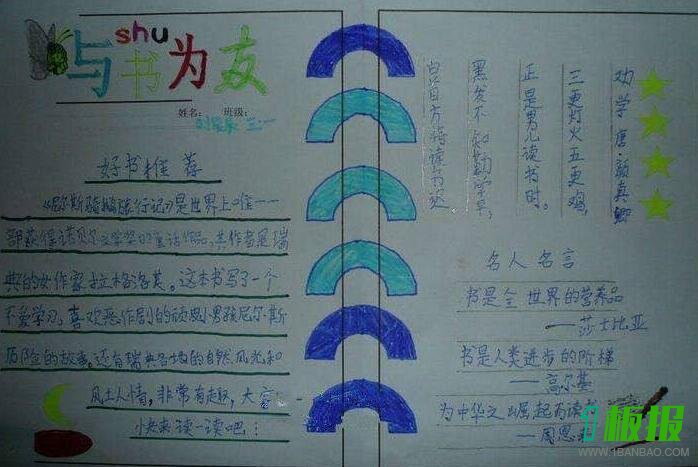 shu
与书为友
姓名： 班级：
三.一
好书推荐
《尼尔斯骑鹅旅行记》是世界上唯一一
部获得诺贝尔文学奖的童话作品，其作者是瑞
典的女作家拉格洛芙。这本书写了一个
不爱学习，喜欢恶作剧的顽皮小男孩尼尔斯
历险的故事，还有瑞典各地的自然风光和
风土人情，非常有趣，大家
快来读一读吧！
劝学 唐 颜真卿
三更灯火五更鸡，
正是男儿读书时。
黑发不知勤学早，
白首方悔读书迟
名人名言
书是全世界的营养品
——莎士比亚
书是人类进步的阶梯
——高尔基
为中华之崛起而读书
——周恩来
板报
WWW.1BANBAO.COM